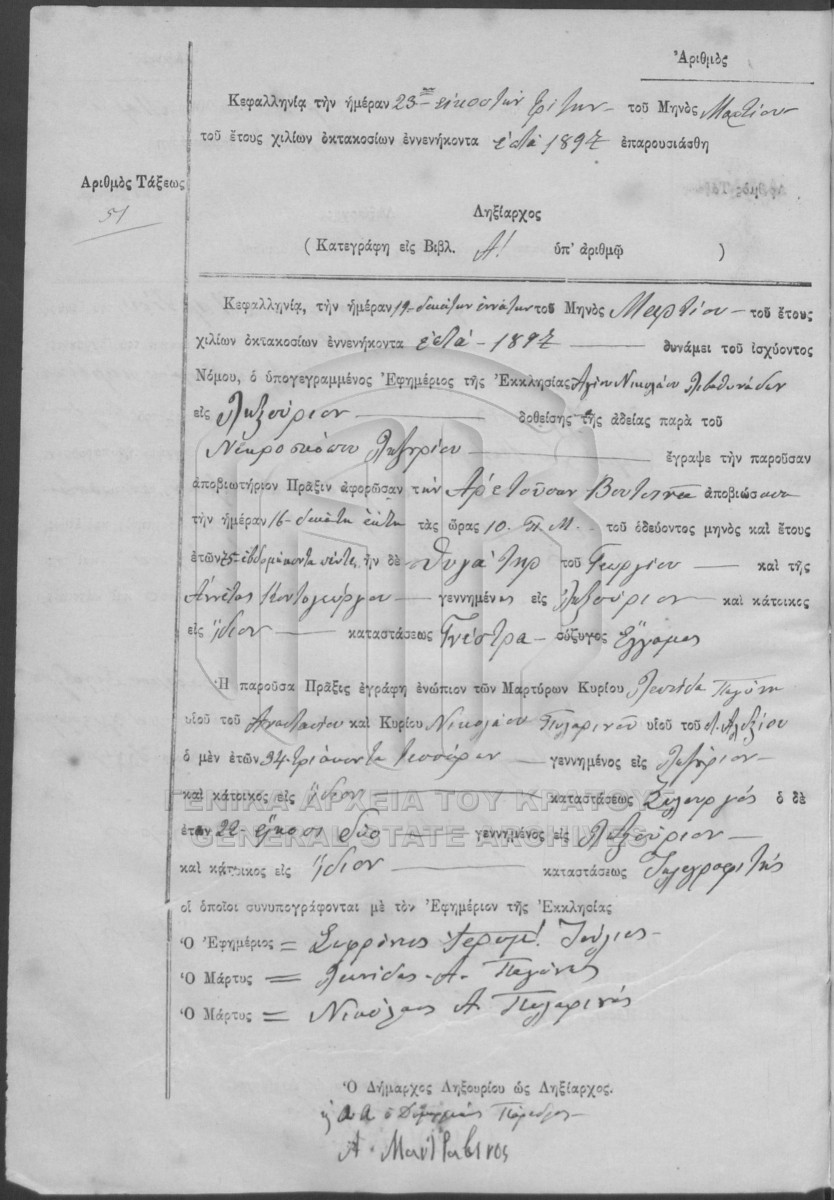 Ἀριθμὸς
Κεφαλληνίᾳ τὴν ἡμέραν 23 εἰκοστὴν τρίτην τοῦ Μηνὸς Μαρτίου
τοῦ ἔτους χιλίων ὀκτακοσίων ἐννενήκοντα ἑπτὰ 1897 ἐπαρουσιάσθη
Ἀριθμὸς Τάξεως
51
Ληξίαρχος
( Κατεγράφη εἰς Βιβλ. Α! ὑπ' ἀριθμῷ )
Κεφαλληνίᾳ, τὴν ἡμέραν 19 δεκάτην ἐννάτην τοῦ Μηνὸς Μαρτίου – τοῦ ἔτους
χιλίων ὀκτακοσίων ἐννενήκοντα ἑπτὰ - 1897 δυνάμει τοῦ ἰσχύοντος
Νόμου, ὁ ὑπογεγραμμένος Ἐφημέριος τῆς Ἐκκλησίας Ἁγίου Νικολάου
εἰς Ληξούριον δοθείσης τῆς ἀδείας παρὰ τοῦ
Νεκροσκόπου Ληξουρίου ἔγραψε τὴν παροῦσαν
ἀποβιωτήριον Πρᾶξιν ἀφορῶσαν τὴν Ἀρετοῦσαν ἀποβιώσασαν
τὴν ἡμέραν 16 δεκάτην ἕκτην τὰς ὥρας 10. Π. Μ. τοῦ ὁδεύοντος μηνὸς καὶ ἔτους
ἐτῶν 75 ἑβδομήκοντα πέντε, ἦν δὲ θυγάτηρ τοῦ Γεωργίου – καὶ τῆς
Ἀννέτας Κοντογεώργου – γεννημένος εἰς Ληξούριον – καὶ κάτοικος
εἰς ἴδιον – καταστάσεως Γνέστρα – σύζυγος Ἔγγαμος
Ἡ παροῦσα Πρᾶξις ἐγράφη ἐνώπιον τῶν Μαρτύρων Κυρίου Λεωνίδα Παγώνη
υἱοῦ τοῦ Ἀναστασίου καὶ Κυρίου Νικολάου Πυλαρινοῦ υἱοῦ τοῦ Ἀλεξίου
ὁ μὲν ἐτῶν 34 τριάκοντα τεσσάρων γεννημένος εἰς Ληξούριον –
καὶ κάτοικος εἰς ἴδιον καταστάσεως Ξυλουργός ὁ δὲ
ΓΕΝΙΚΑ ΑΡΧΕΙΑ ΤΟΥ ΚΡΑΤΟΥΣ
ἐτῶν 22 εἴκοσι δύο γεννημένος εἰς Ληξούριον –
GENERAL STATE ARCHIVES
καὶ κάτοικος εἰς ἴδιον καταστάσεως Τηλεγραφιτής
οἱ ὁποῖοι συνυπογράφονται μὲ τὸν Ἐφημέριον τῆς Ἐκκλησίας
Ὁ Ἐφημέριος = Σωφρόνιος Ἱερομ!
Ὁ Μάρτυς = Λεωνίδας Α. Παγώνης
Ὁ Μάρτυς = Νικόλαος Α Πυλαρινός
Ὁ Δήμαρχος Ληξουρίου ὡς Ληξίαρχος.
ὁ Δημαρχικὸς Πάρεδρος